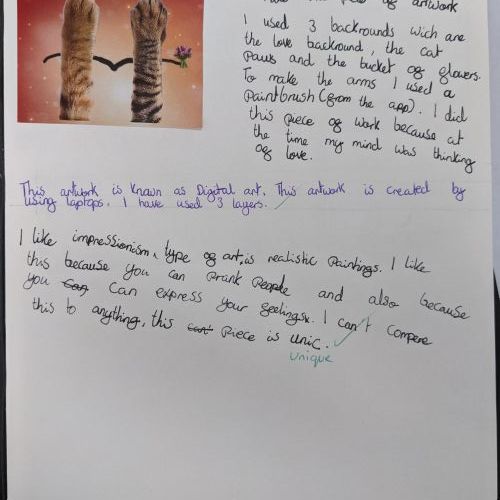 this piece of artwork
I used 3 backrounds wich are
the love backround, the cat
paws and the bucket of flowers.
To make the arms I used a
Paintbrush (from the app). I did
this piece of work because at
the time my mind was thinking
of love.
This artwork is known as Digital art. This artwork is created by
using laptops. I have used 3 layers.
I like impressionism, type of art, is realistic Paintings. I like
this because you can Prank People and also because
you can express your feelings. I can't compere
this to anything, this piece is unic.
unique